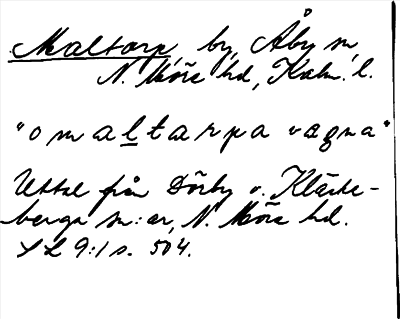 Maltorp, by, Åby sn,
N. Möre hd, Kalm. l.
"omaltarpa vagna"
Uttal från Dörby o. Kläcke-
berga sn:ar, N. Möre hd.
SL 9:1 s. 504.